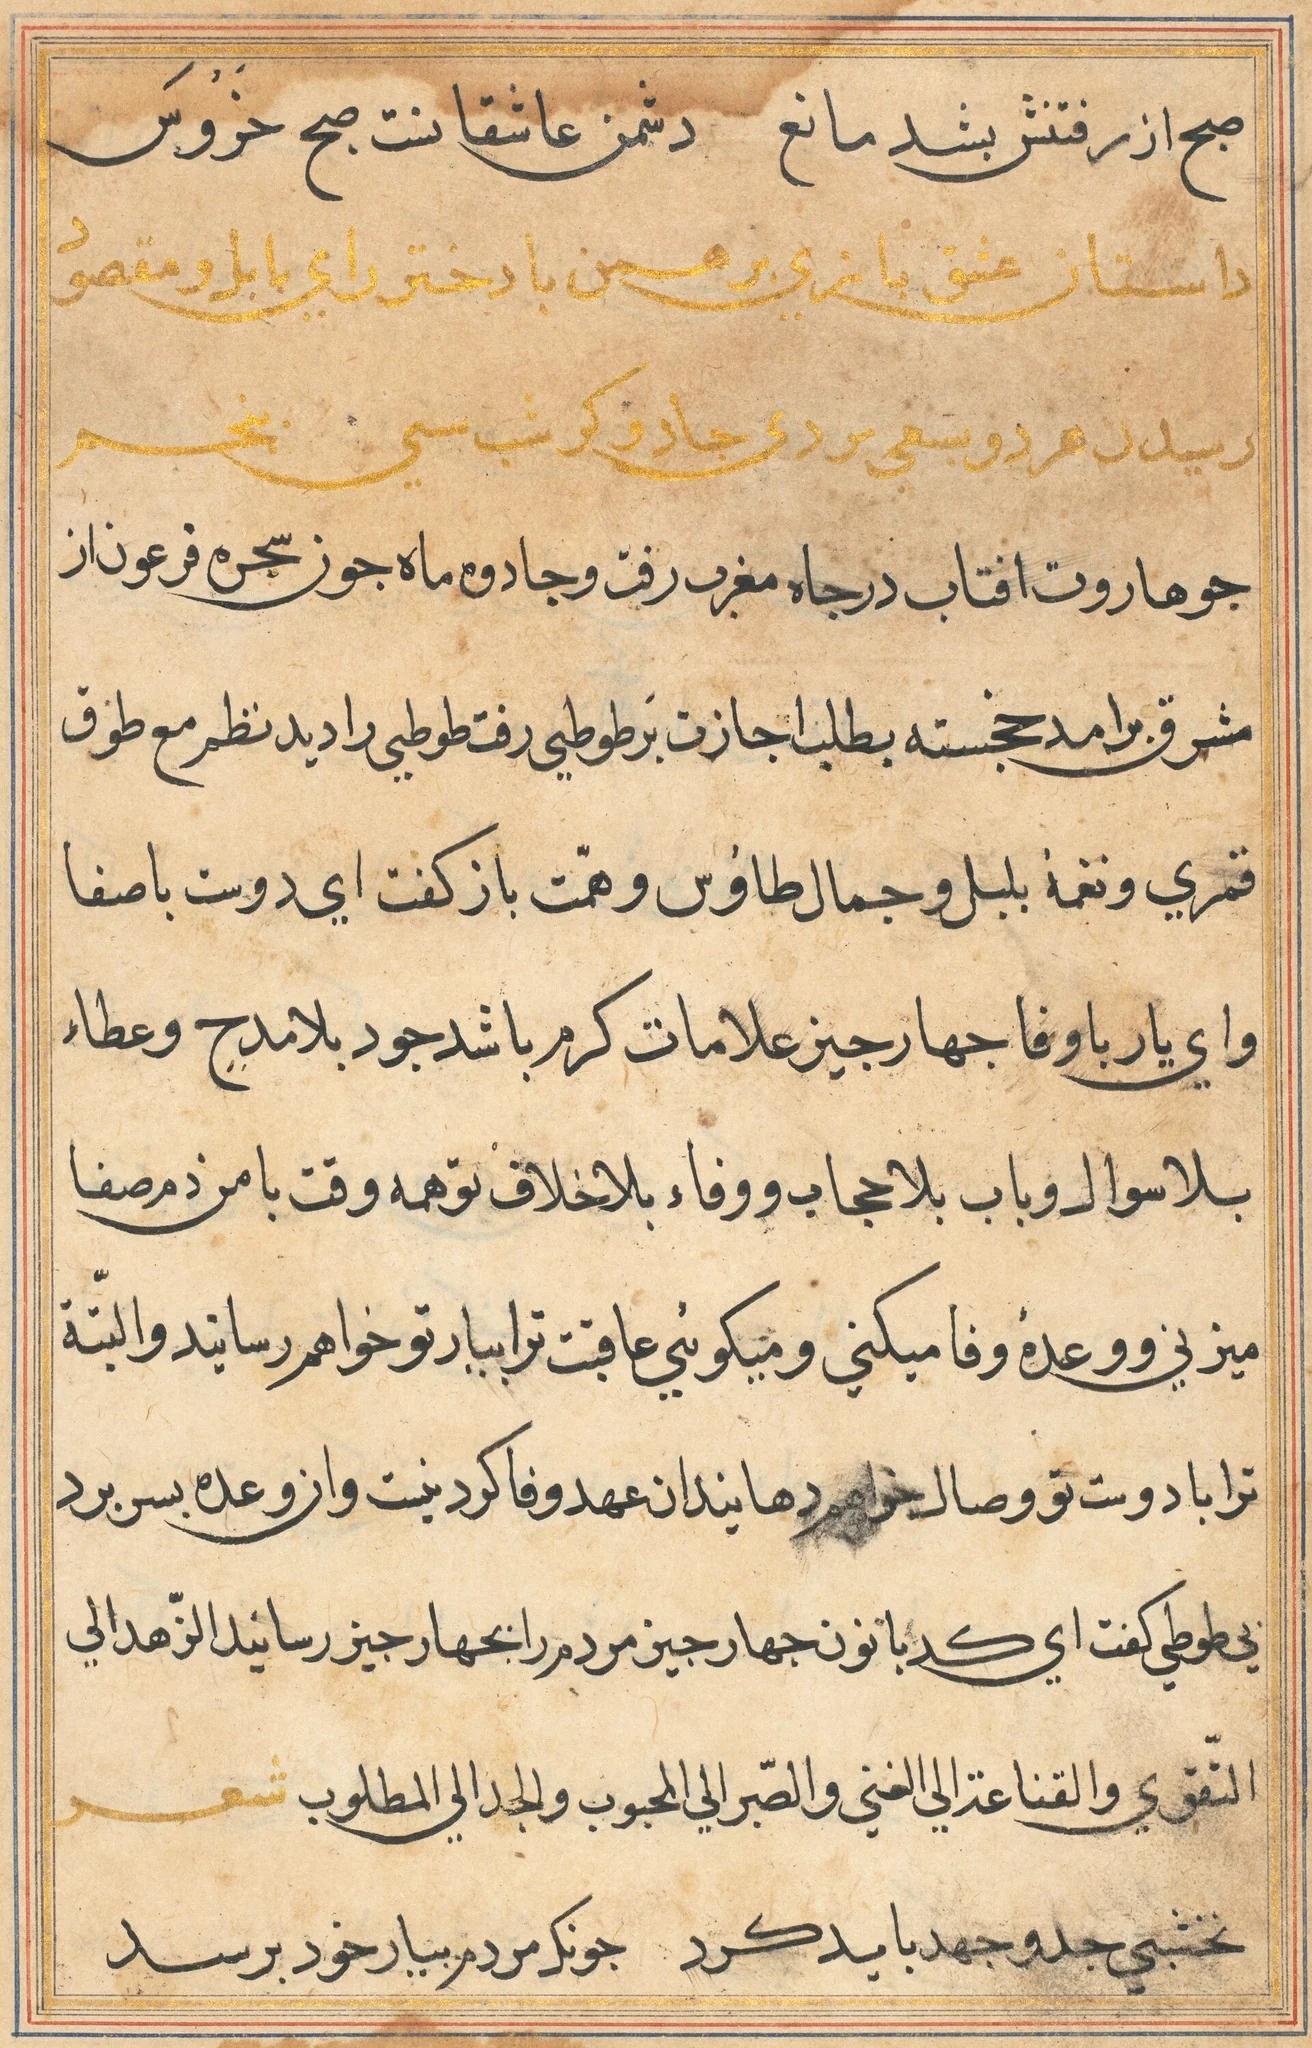 صبح از رفتنش بشد مانع دشمن عاشقانست صبح خروس
داستان عشق بازي برهمن با دختر راي بابل و مقصود
رسيدن هر دو بسعي مردي جادوكر شب سي بنجم
جو هاروت افتاب در جاه مغرب رفت و جادوه ماه جون سحره فرعون از
مشرق برامد خجسته بطلب اجازت بر طوطي رفت طوطي را ديد نظم مع طوق
قمري و نغمۀ بلبل و جمال طاؤس و همّت باز كفت اي دوست باصفا
واي يار باوفا جهار جيز علامات كرم باشد جود بلا مدح وعطاء
بلا سوال وباب بلا حجاب ووفاء بلا خلاف تو همه وقت با من دم صفا
ميزني و وعدۀ وفا ميكني و ميكوئي عاقبت ترا بيار تو خواهم رسانيد والبتّة
ترا با دوست تو وصال خواهم دهانيد ان عهد وفا كردنيست وان وعده بسر برد
ني طوطي كفت اي كدبانون جهار جيز مردم را بجهار جيز رسانيد الزّهد الي
التّقوي والقناعة الي الغني والصّبر الي المحبوب والجد الي المطلوب شعر
نخشبي جد و جهد بايد كرد جونكه مردم بيار خود برسد